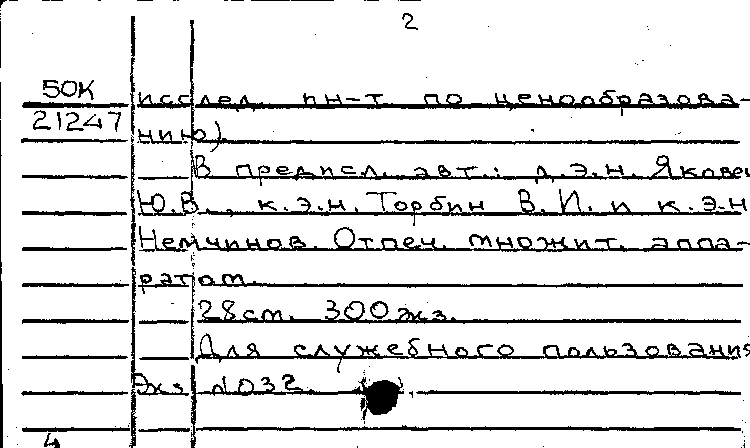 2
50К исслед. ин-т по ценообразова-
21247 нию).
В предисл. авт.: д.э.н. Яковец
Ю.В., к.э.н. Торбин В.И. и к.э.н
Немчинов. Отпеч. множит. аппа-
ратом.
28 см. 300 экз.
Для служебного пользования
Экз. N032.
4